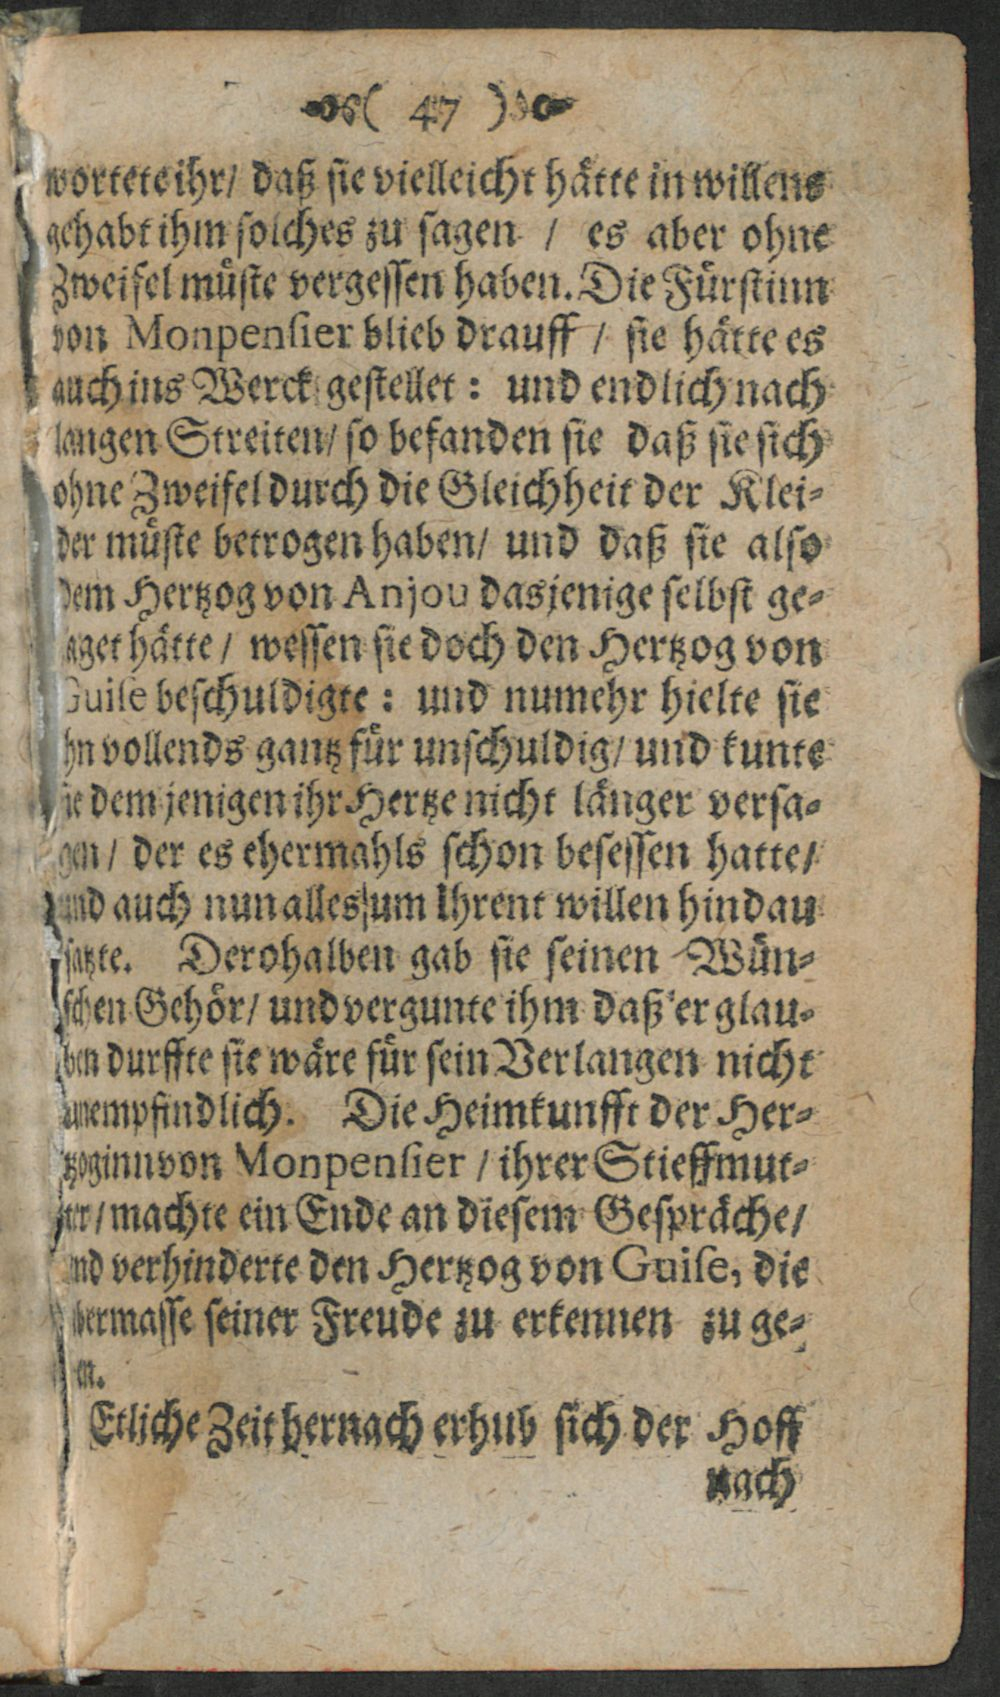 ( 47 )
wortete ihr/ daß sie vielleicht hätte in willens
gehabt ihm solches zu sagen / es aber ohne
Zweifel müste vergessen haben. Die Fürstinn
von Monpensier blieb drauff / sie hätte es
auch ins Werck gestellet : und endlich nach
langen Streiten/ so befanden sie daß sie sich
ohne Zweifel durch die Gleichheit der Klei-
der müste betrogen haben/ und daß sie also
dem Hertzog von Anjou dasjenige selbst ge-
aget hätte / wessen sie doch den Hertzog von
Guise beschuldigte : und numehr hielte sie
hn vollends gantz für unschuldig/ und kunte
ie dem jenigen ihr Hertze nicht länger versa-
gen / der es ehermahls schon besessen hatte/
und auch nun alles um ihrent willen hindan
satzte. Derohalben gab sie seinen Wün-
schen Gehör/ und vergunte ihm daß er glau-
ben durffte sie wäre für sein Verlangen nicht
unempfindlich. Die Heimkunfft der Her-
tzoginn von Monpensier / ihrer Stieffmut-
ter / machte ein Ende an diesem Gespräche/
nd verhinderte den Hertzog von Guise, die
bermasse seiner Freude zu erkennen zu ge-
en.
Etliche Zeit hernach erhub sich der Hoff
nach